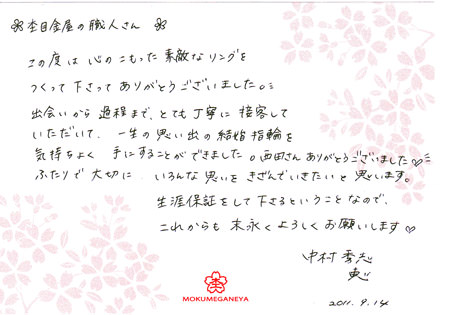 杢目金屋の職人さん
この度は心のこもった素敵なリングを
つくって下さってありがとうございました。
出会いから過程まで、とても丁寧に接客して
いただいて、一生の思い出の結婚指輪を
気持ちよく手にすることができました。西田さんありがとうございました♡
ふたりで大切に いろんな思いをきざんでいきたいと思います。
生涯保証をして下さるということなので、
これからも末永くよろしくお願いします♡
中村
恵
MOKUMEGANEYA
2011.9.14